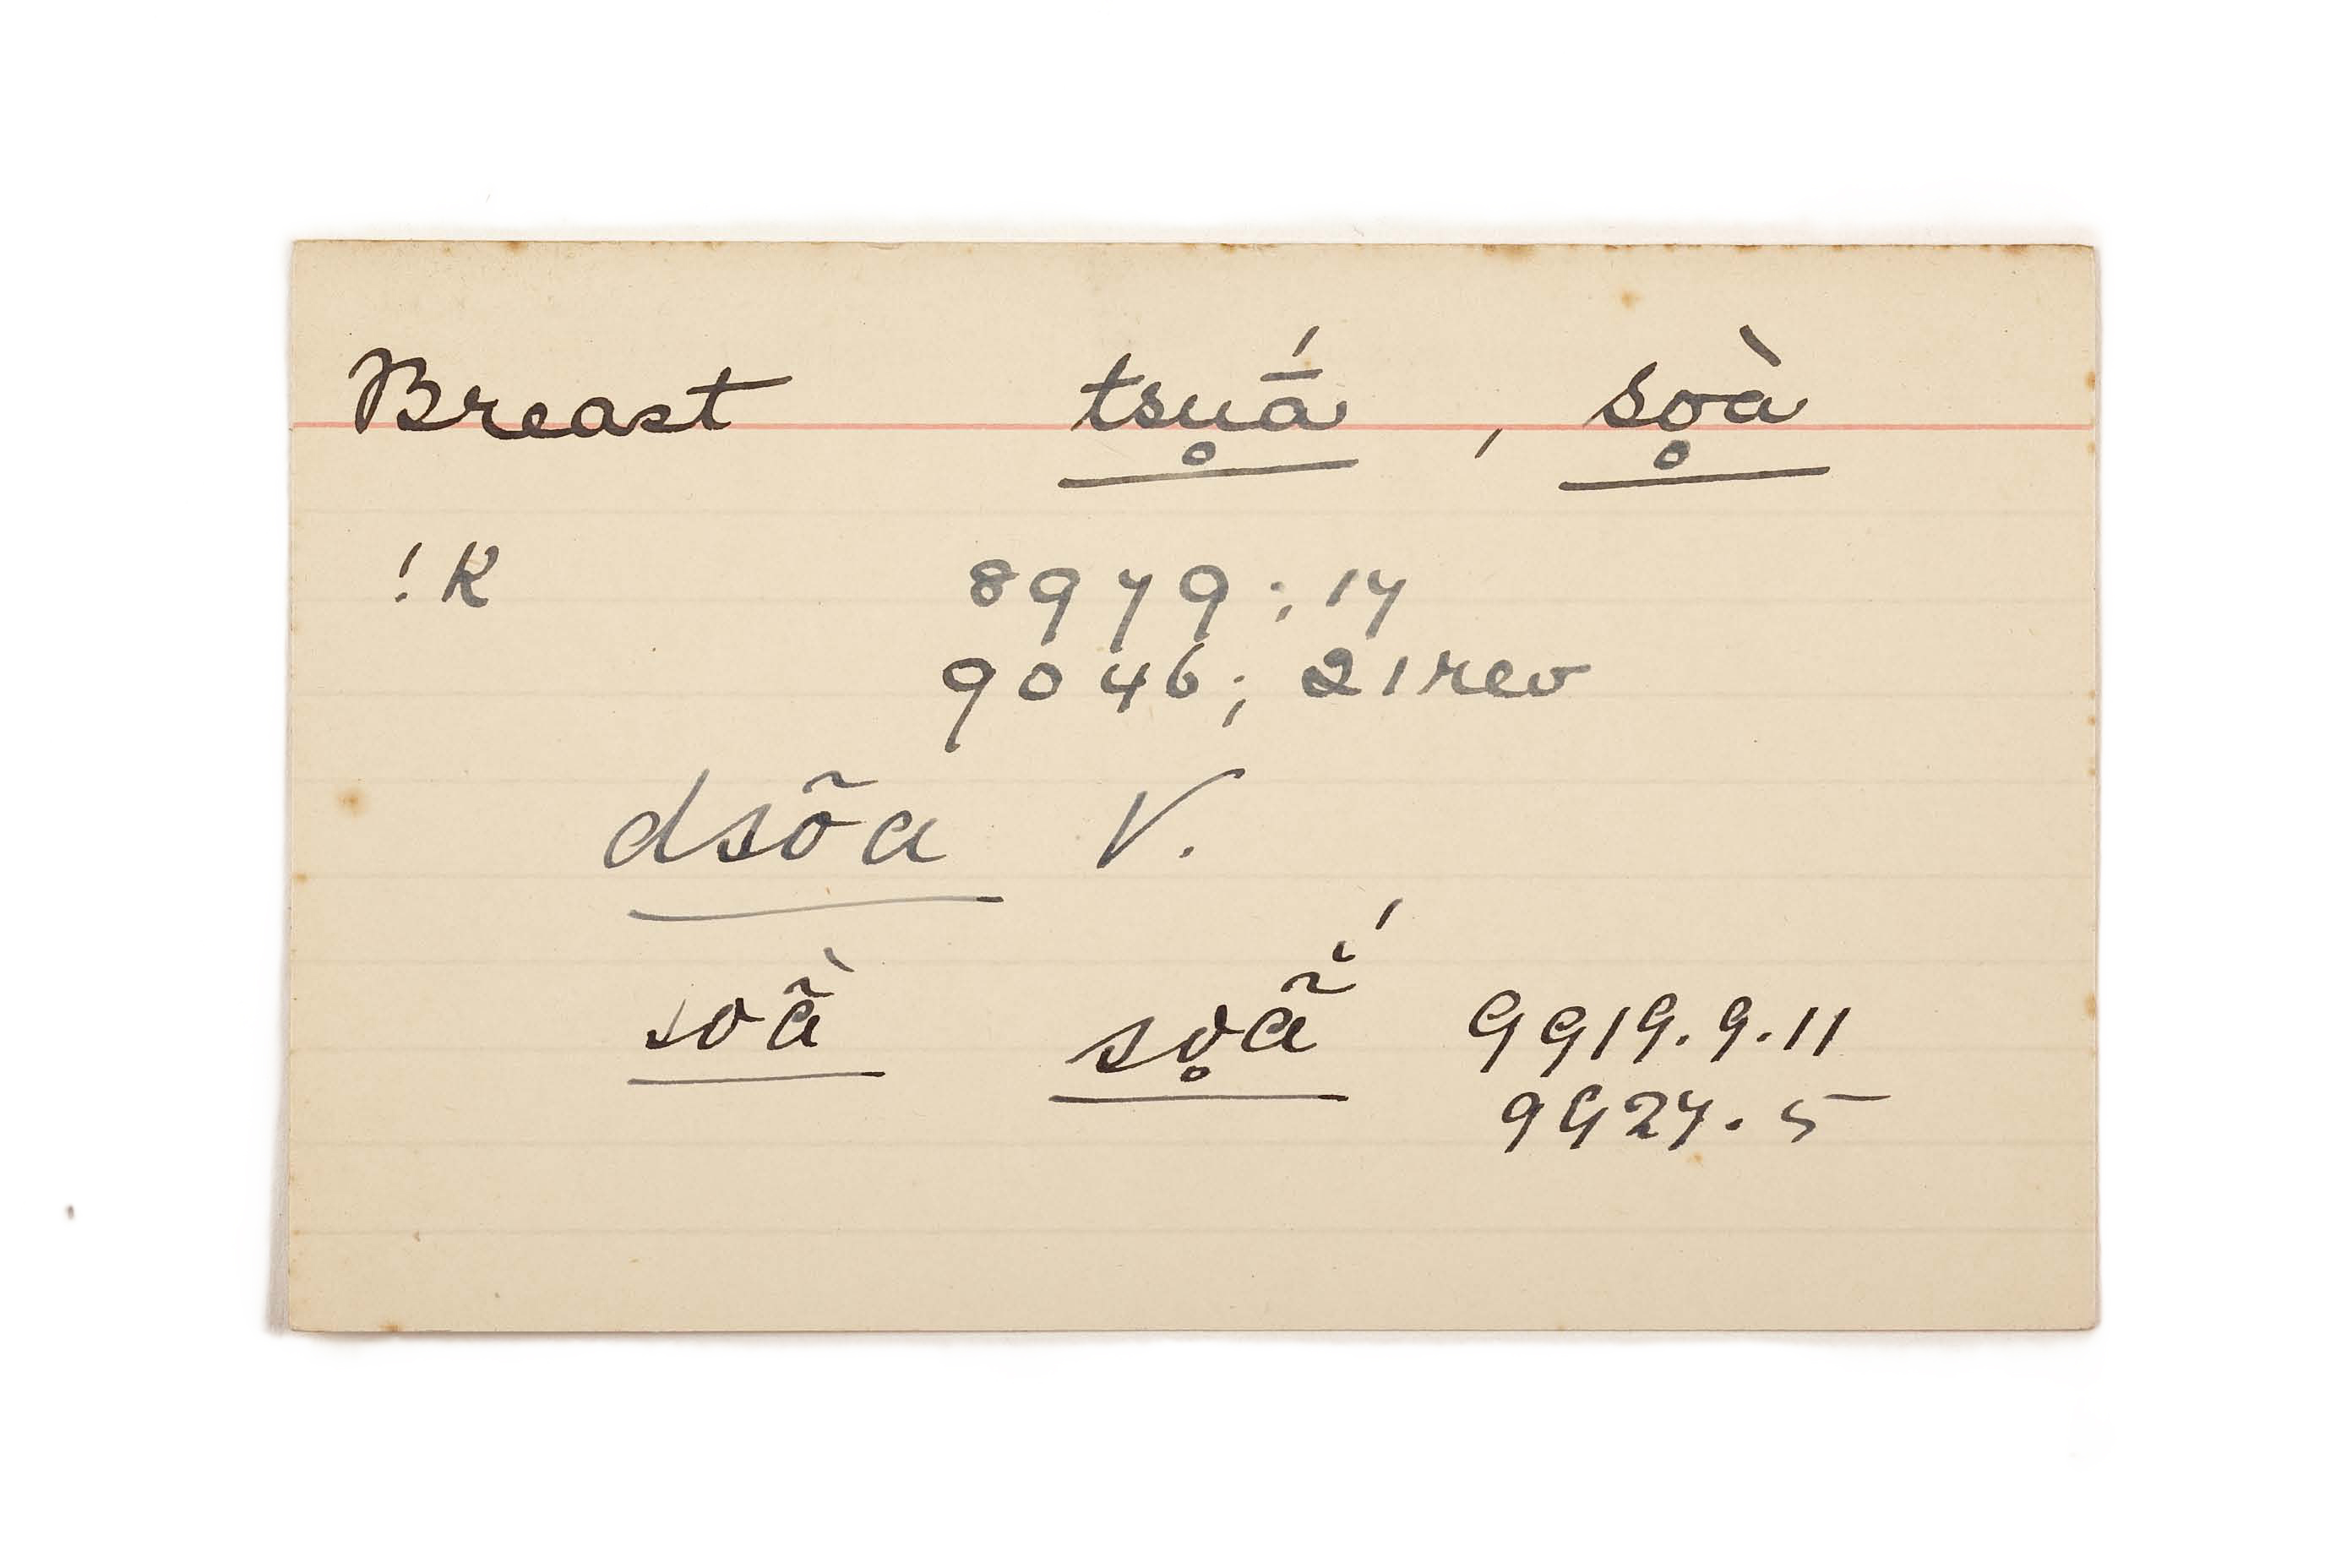 Breast tsu̥ā́ , so̥à
!K 8979; 17
9046; 21rev
dsõa V.
soã̀ so̥ã̆́ 9919.9.11
9927.5